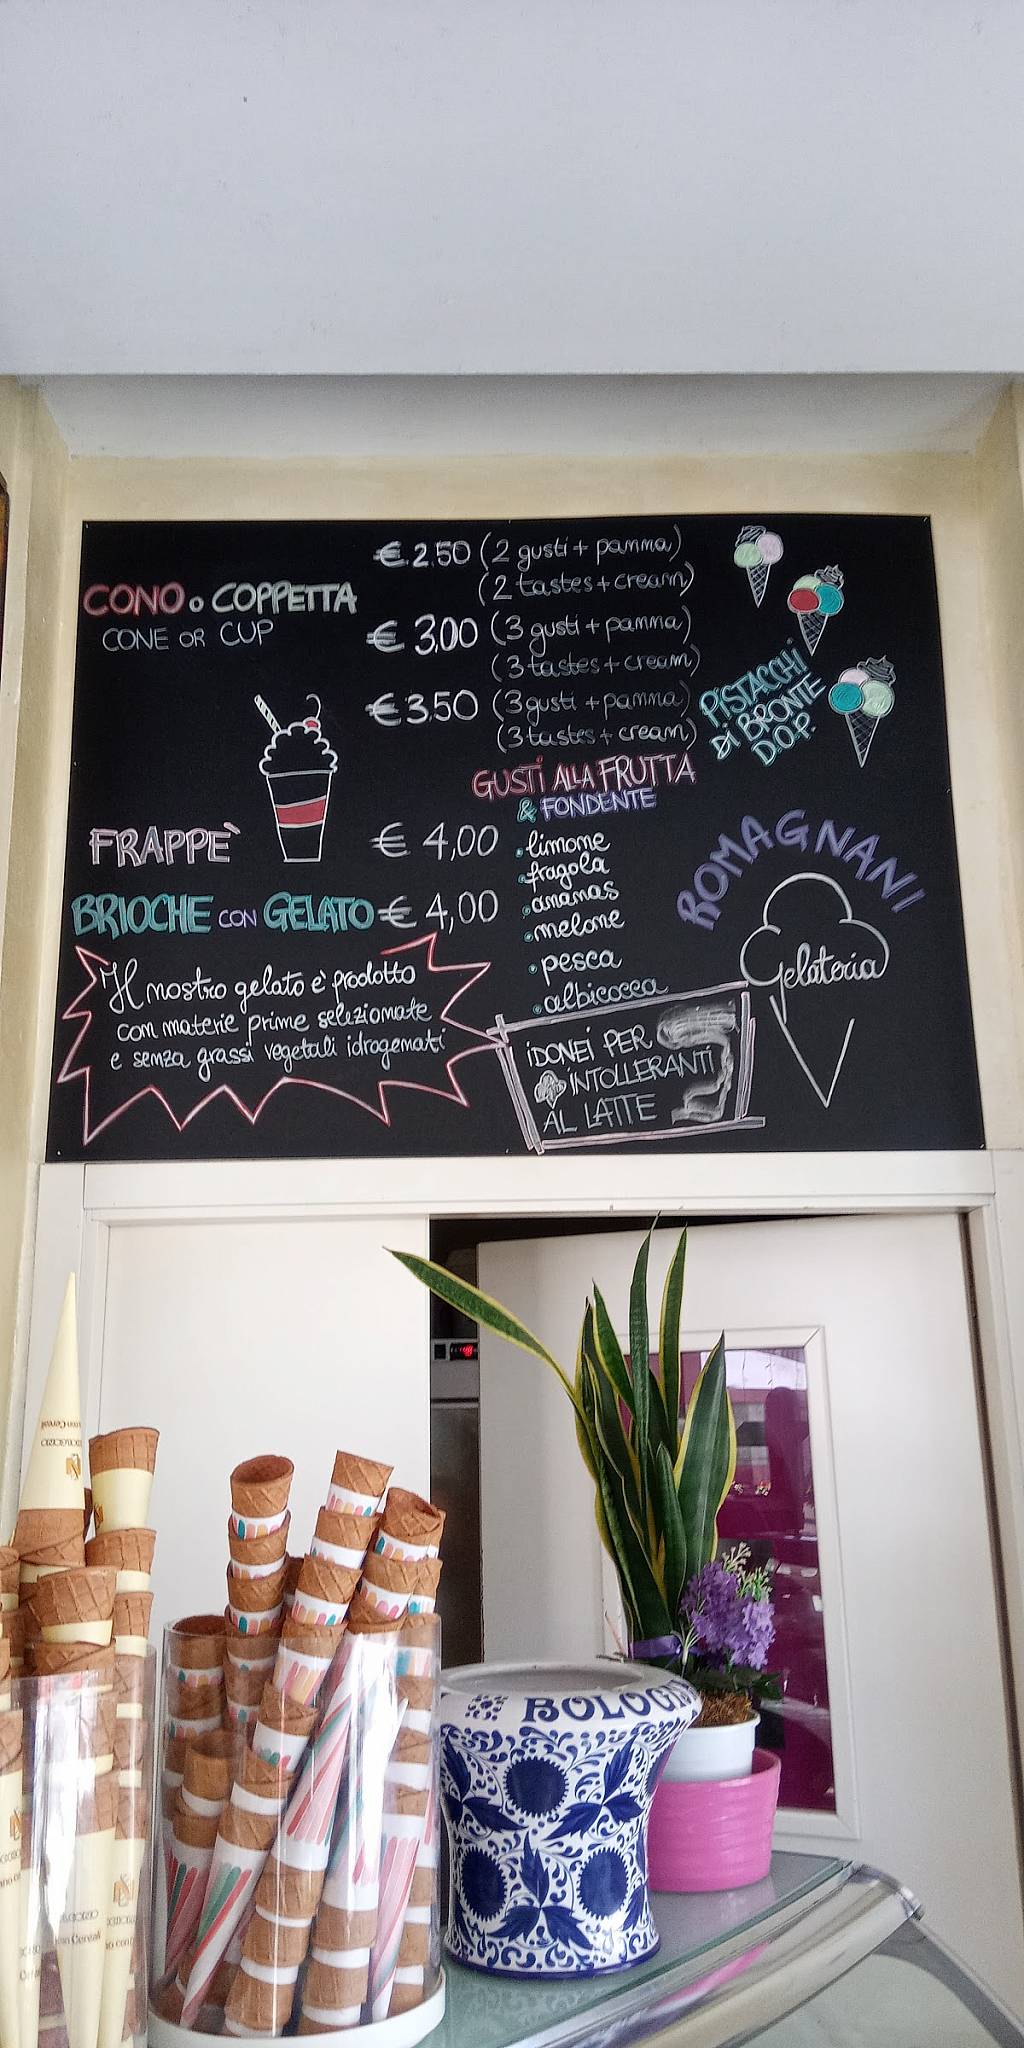 € 2.50 (2 gusti + panna)
(2 tastes + cream)
CONO o COPPETTA
CONE OR CUP
€ 3,00 (3 gusti + panna)
(3 tastes + cream)
€ 3,50 (3 gusti + panna)
(3 tastes + cream)
PISTACCHI
DI BRONTE
D.O.P.
GUSTI ALLA FRUTTA
& FONDENTE
FRAPPÈ € 4,00
BRIOCHE CON GELATO € 4,00
• limone
• fragola
• ananas
• melone
• pesca
• albicocca
IDONEI PER
INTOLLERANTI
AL LATTE
Il nostro gelato è prodotto
con materie prime selezionate
e senza grassi vegetali idrogenati
ROMAGNANI
Gelateria
BOLOGN